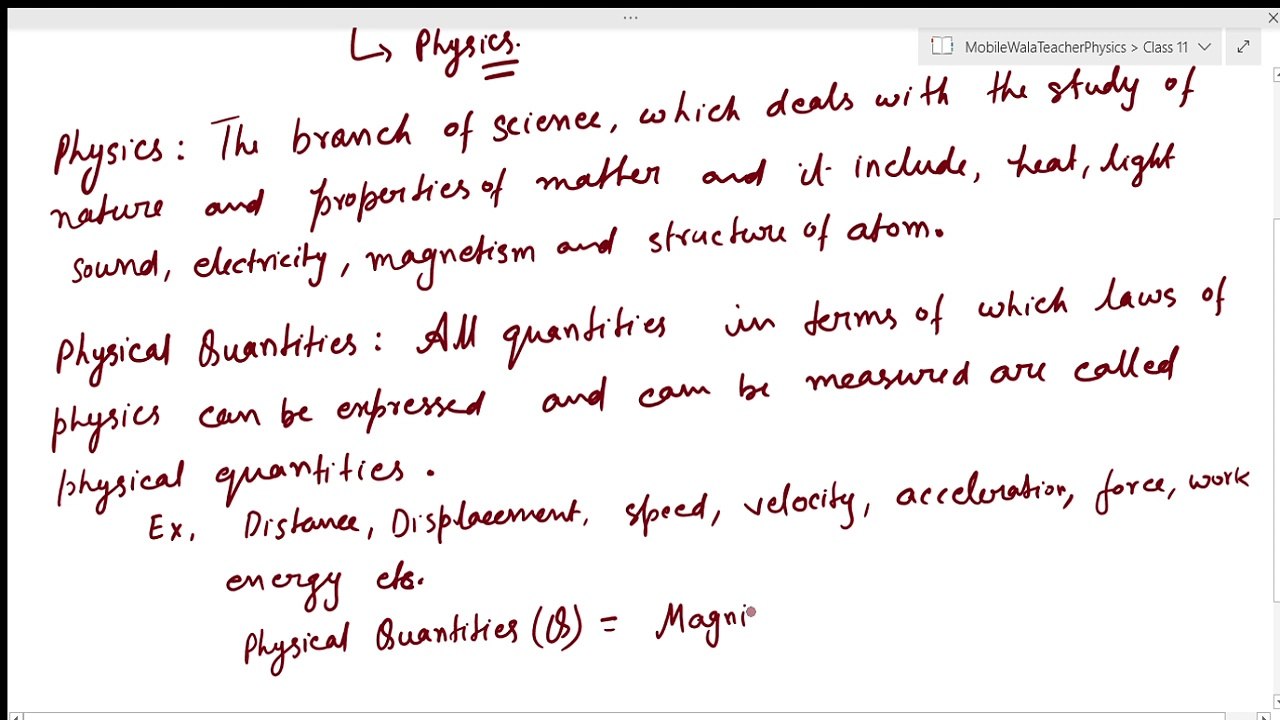 ↳ Physics.
MobileWalaTeacherPhysics > Class 11
Physics: The branch of science, which deals with the study of
nature and properties of matter and it include, heat, light
sound, electricity, magnetism and structure of atom.
Physical Quantities: All quantities in terms of which laws of
physics can be expressed and can be measured are called
physical quantities.
Ex, Distance, Displacement, speed, velocity, acceleration, force, work
energy etc.
Physical Quantities (Q) = Magni